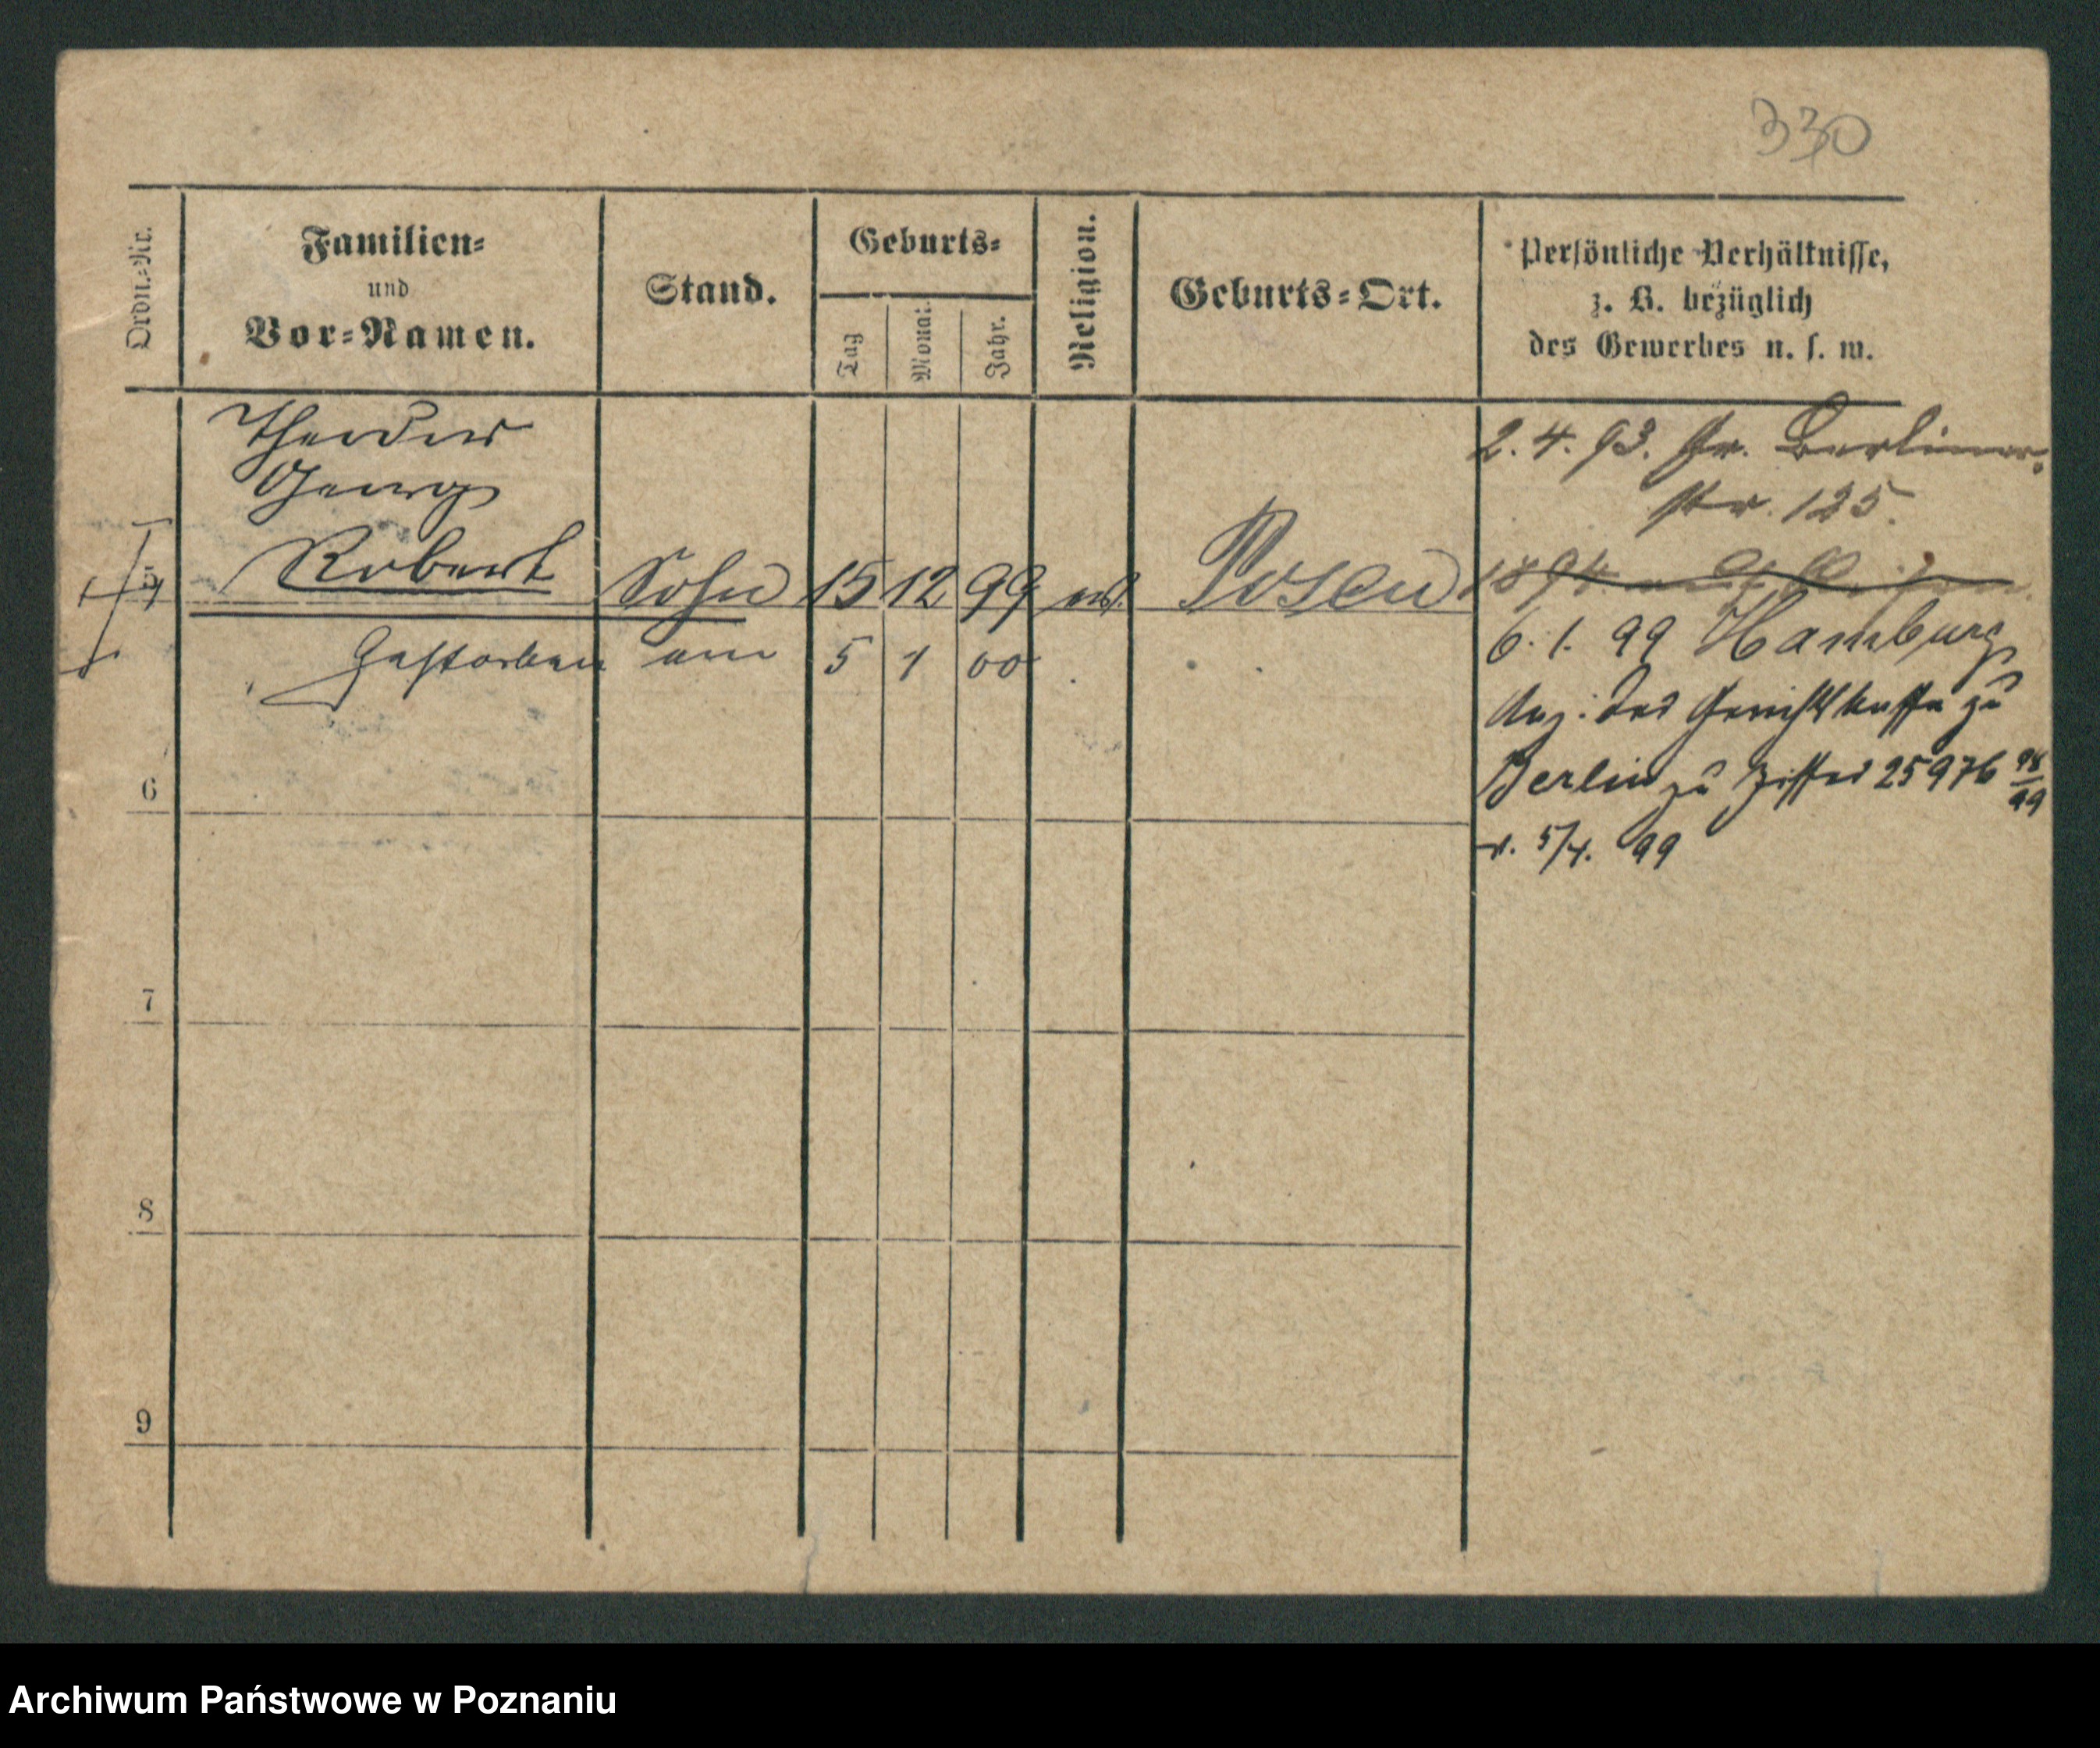 330
Ordn.-Nr.
Familien-
und
Vor-Namen.
Stand.
Geburts-
Tag
Monat
Jahr.
Religion.
Geburts-Ort.
Persönliche Verhältnisse,
z. B. bezüglich
des Gewerbes u. s. w.
Theodor
Georg
5 Robert Sohn 15 12 99 Posen
Gestorben am 5 1 00
2.4.93. Gr. Berliner-
str. 125.
1894
6.1.99 Hamburg
Anz. der Gerichtskasse zu
Berlin zu Ziffer 25976 98/99
v. 5/4. 99
6
7
8
9
Archiwum Państwowe w Poznaniu